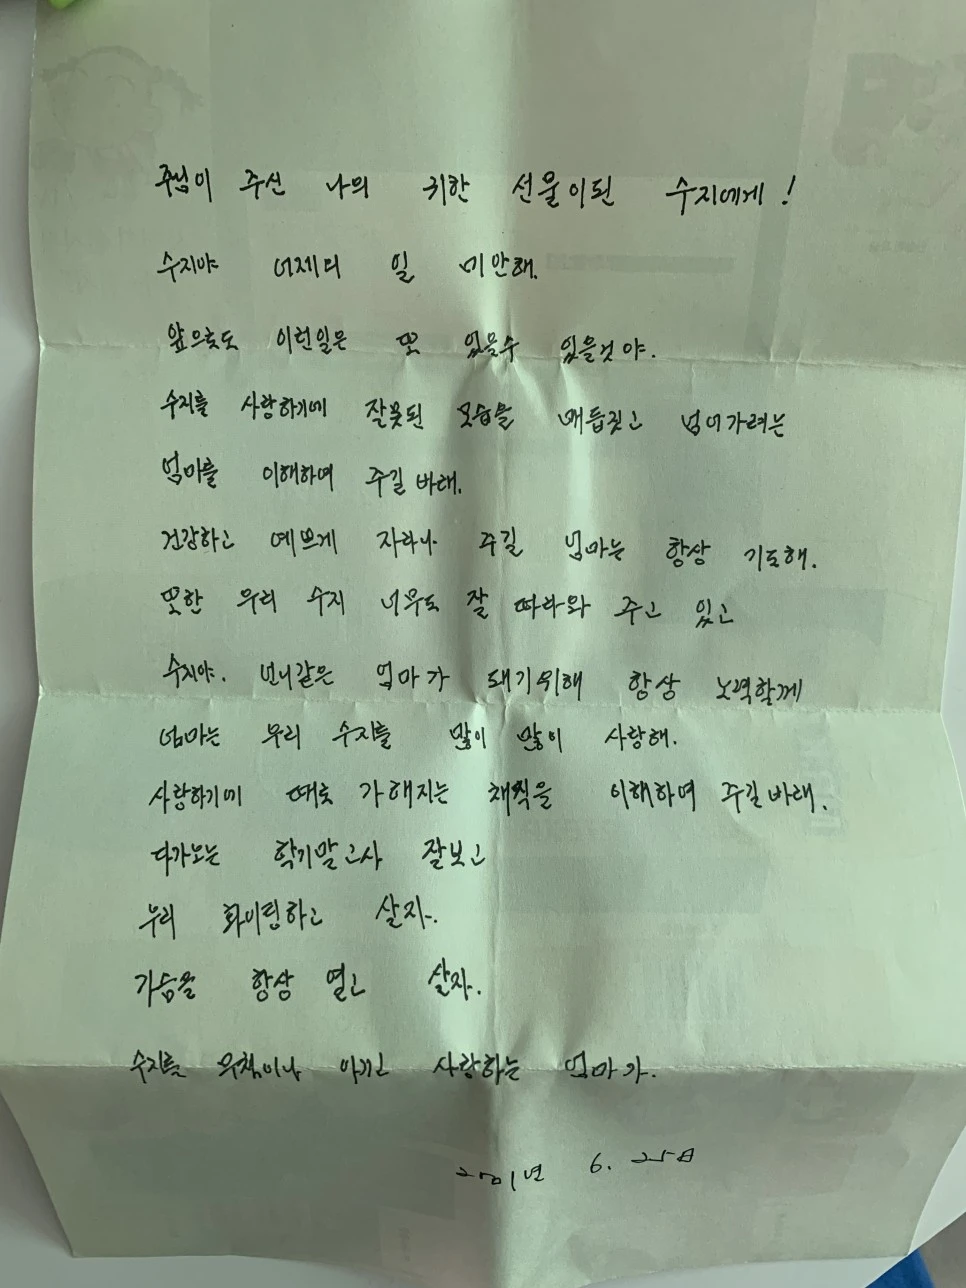 주님이 주신 나의 귀한 선물이된 수지에게!
수지야 어제의 일 미안해.
앞으로도 이런일은 또 있을수 있을것야.
수지를 사랑하기에 잘못된 모습을 매듭짓고 넘어가려는
엄마를 이해하여 주길 바래.
건강하고 예쁘게 자라나 주길 엄마는 항상 기도해.
또한 우리 수지 너무도 잘 따라와 주고 있고
수지야. 언니같은 엄마가 돼기위해 항상 노력할께
엄마는 우리 수지를 많이 많이 사랑해.
사랑하기에 때로 가해지는 채찍을 이해하며 주길바래.
다가오는 학기말고사 잘보고
우리 화이팅하고 살자.
가슴을 항상 열고 살자.
수지를 무척이나 아끼고 사랑하는 엄마가.
2001년 6. 25日